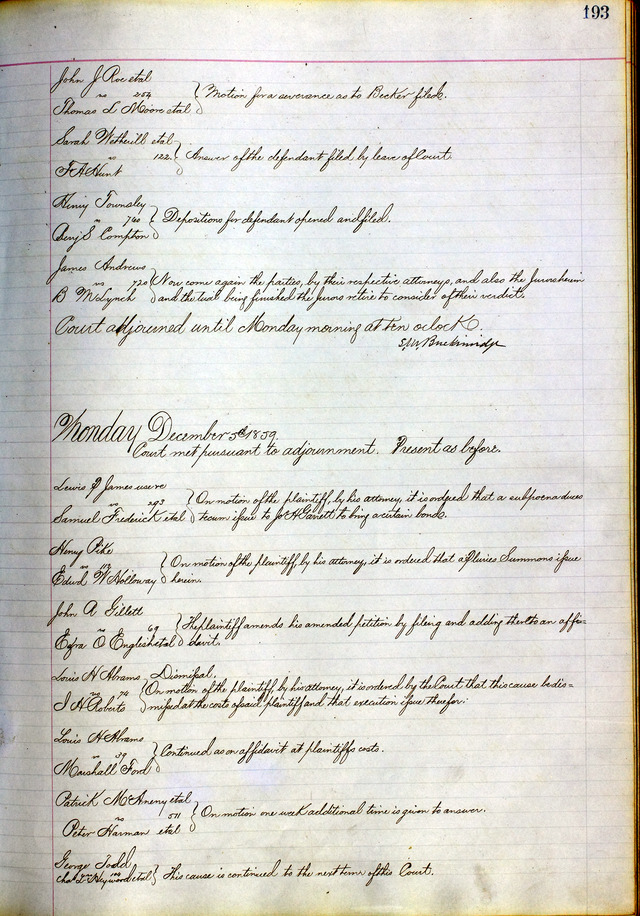 193
John J Roe etal
vs 254 Motion for a severance as to Becker filed.
Thomas L Moore etal
Sarah Wetherill etal
vs 122. Answer of the defendant filed by leave of Court.
F A Hunt
Henry Tounsley
vs 740 Depositions for defendant opened and filed.
Benj S Compton
James Andrews
vs 720 Now come again the parties, by their respective attorneys, and also the Jurors herein
B McLynch and the trial being finished the Jurors retire to consider of their verdict.
Court adjourned until Monday morning at ten oclock.
Monday December 5th 1859.
Court met pursuant to adjournment. Present as before.
Lewis & James use vs
vs 293 On motion of the plaintiff, by his attorney, it is ordered that a subpoena duces
Samuel Frederick etal tecum issue to to bring a certain bond.
Henry Pike
vs On motion of the plaintiff, by his attorney, it is ordered that a Pluries Summons issue
Edwd W Holloway herein.
John A Gillett
vs 69 The plaintiff amends his amended petition by fileing and adding thereto an affi=
Ezra O English etal davit.
Louis H Abrams Dismissal.
vs 74 On motion of the plaintiff, by his attorney, it is ordered by the Court that this cause be dis=
I H Roberts missed at the costs of said plaintiff and that execution issue therefor.
Louis H Abrams
vs 39 Continued as on affidavit at plaintiffs costs.
Marshall Ford
Patrick McAneny etal
vs 511 On motion one week additional time is given to answer.
Peter Harman etal
George Todd
vs This cause is continued to the next term of this Court.
Chas L Heyword etal